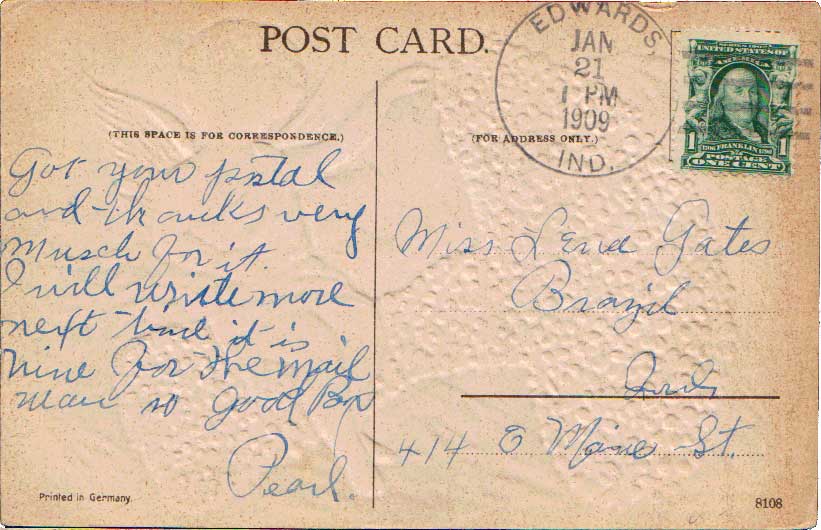 POST CARD.
EDWARDS,
JAN
21
1 PM
1909
IND.
SERIES 1902
UNITED STATES OF
AMERICA
1 1706 FRANKLIN 1790 1
POSTAGE
ONE CENT
(THIS SPACE IS FOR CORRESPONDENCE.)
(FOR ADDRESS ONLY.)
Got your postal
and thanks very
Musch for it
I will write more
next time it is
nine for the mail
man so Good Bye
Pearl.
Miss Lena Gates
Brazil
Ind
414 E Maine St.
Printed in Germany.
8108